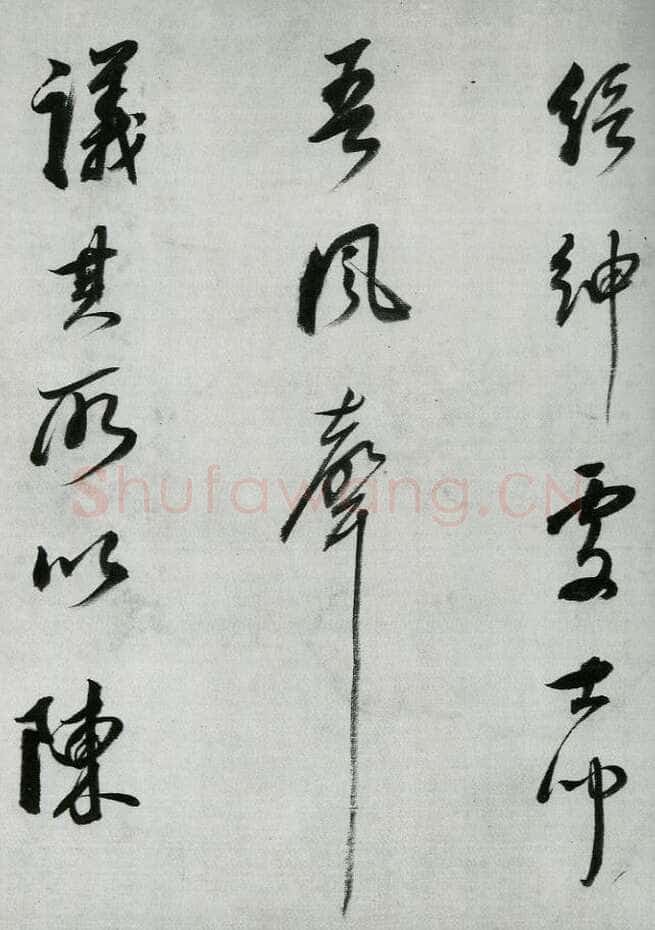 縉紳處士聞
吾風聲
議其所以陳
Shufawang.CN